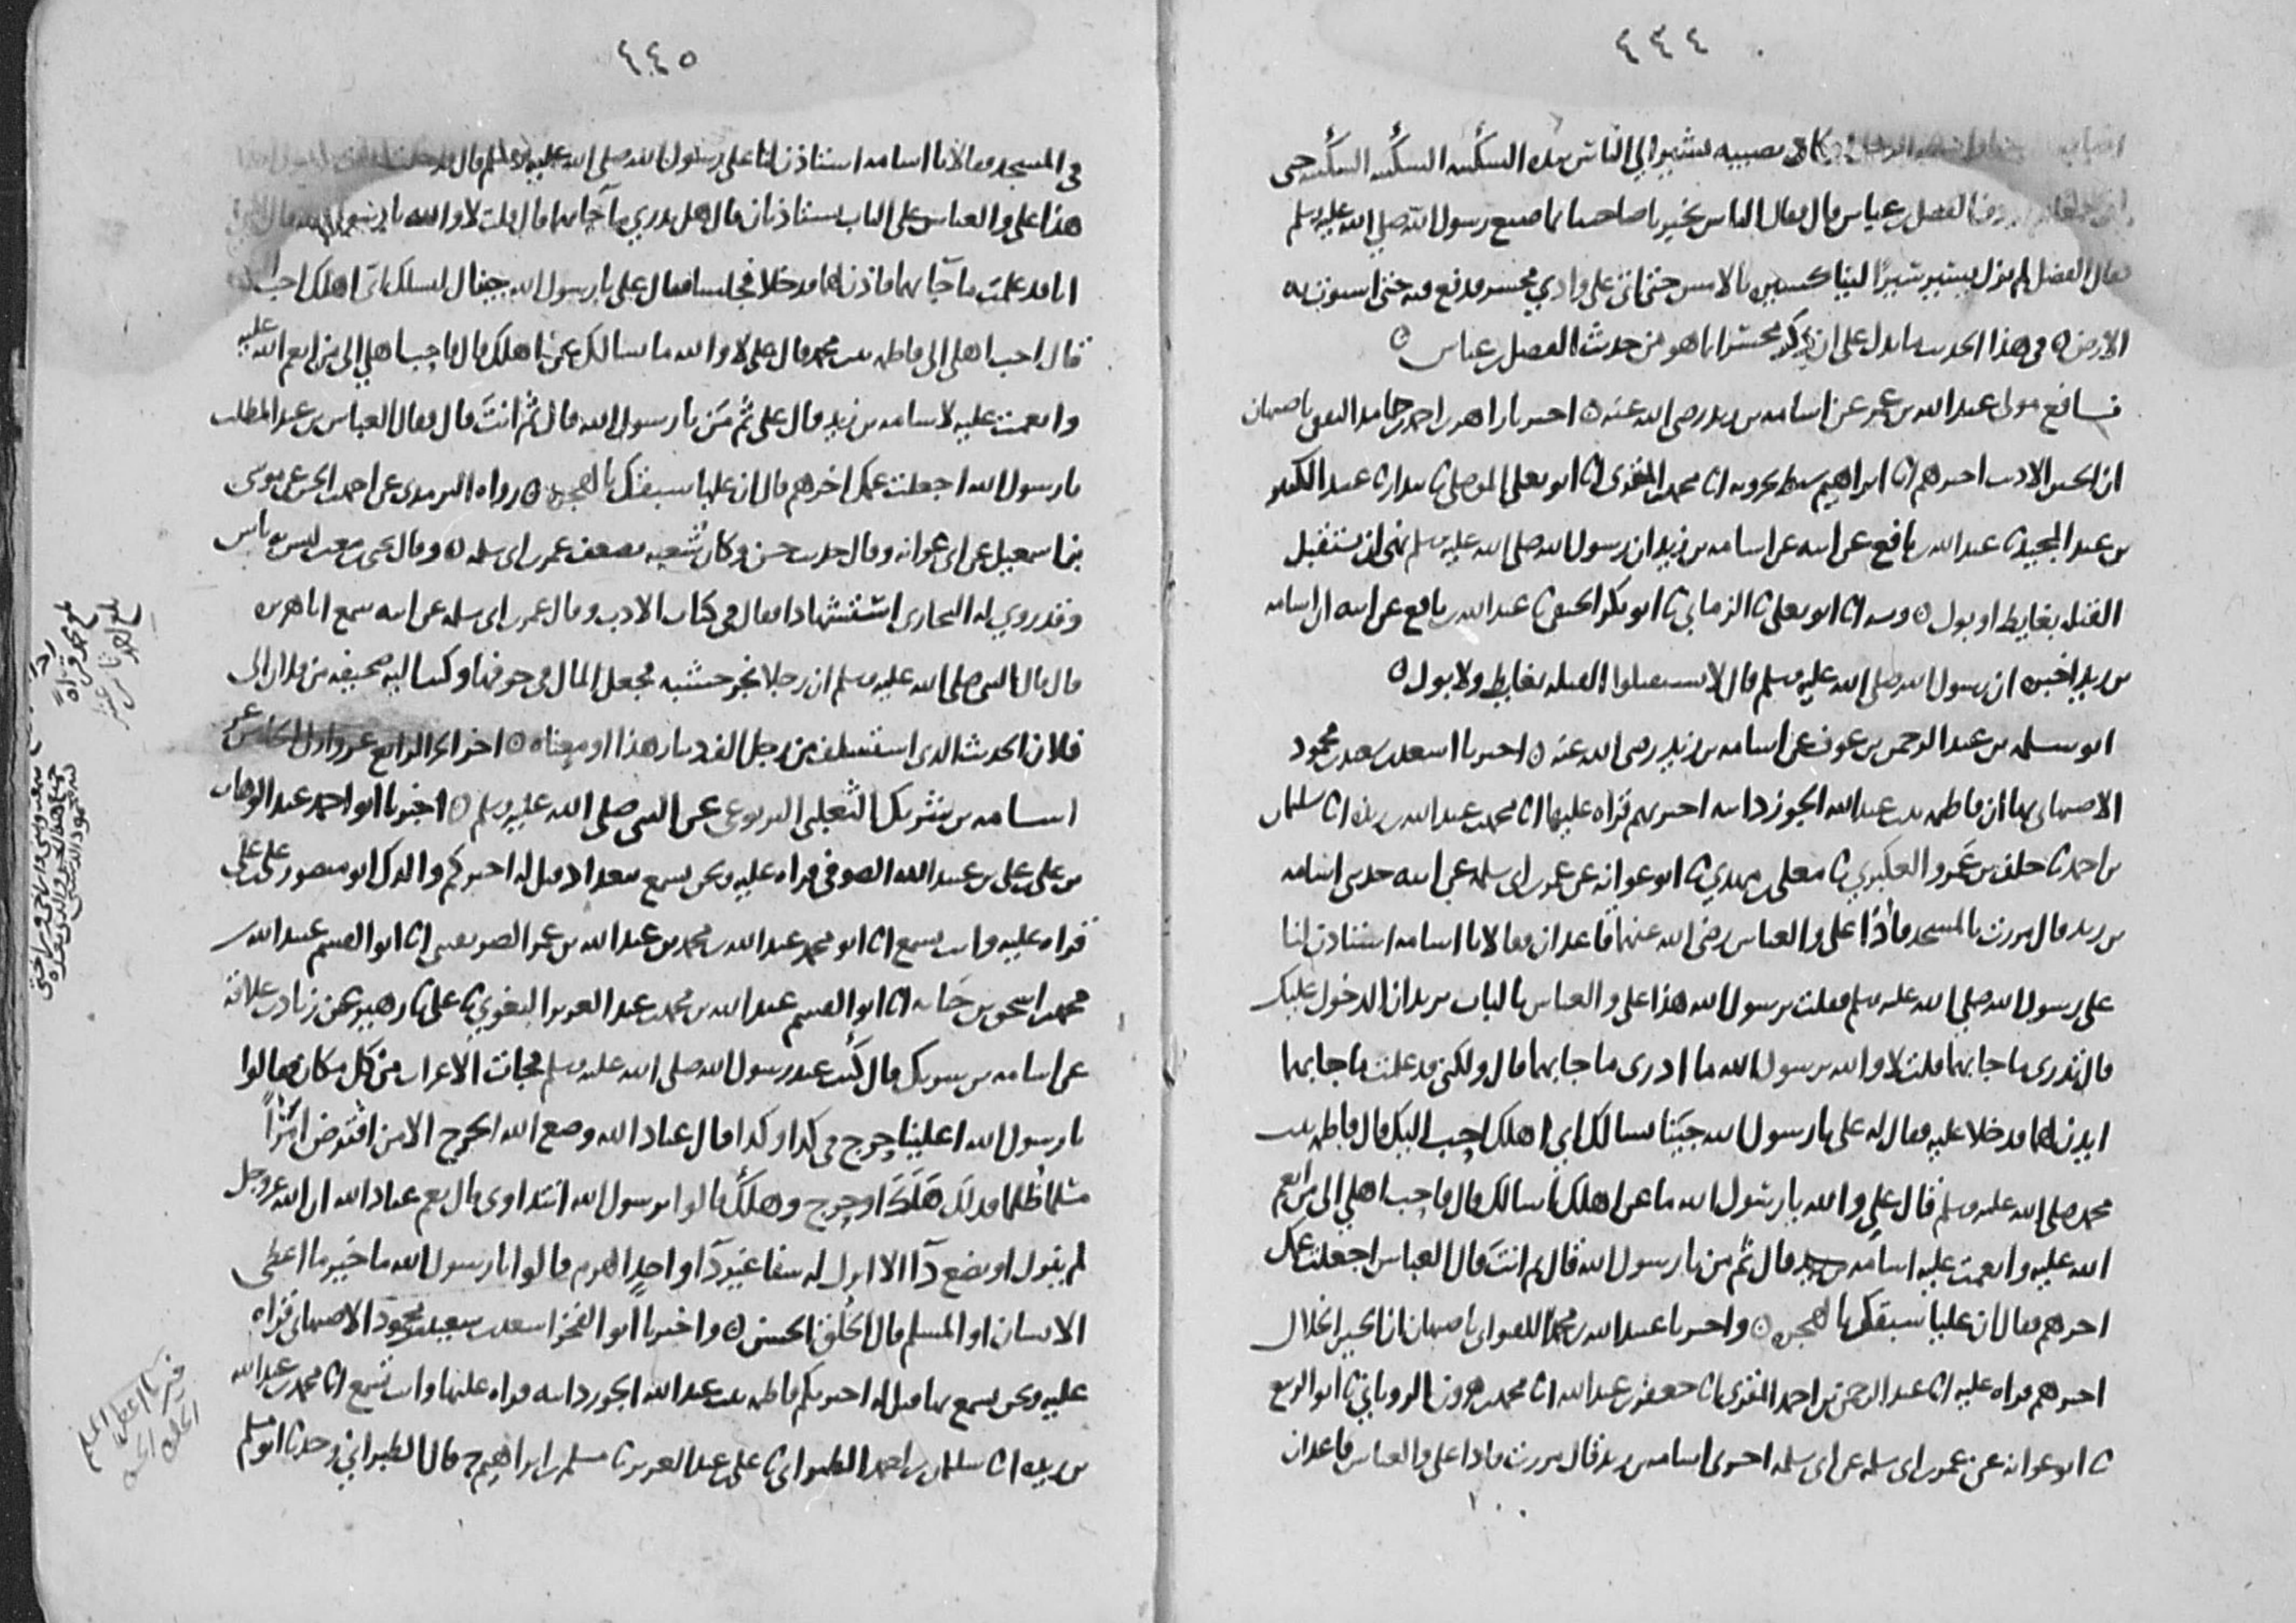 ٤٤٤
كادت تصيبه يشير الى الناس بيده السكينه السكينه السكينه حتى
الفضل بن عباس قال فقال الناس يخبرنا صاحبنا بما صنع رسول الله صلى الله عليه وسلم
فقال الفضل لم يزل يسير سيرا لينا كسيره بالامس حتى اتى على وادي محسر فدفع فيه حتى استوت به
الارض ٥ في هذا الحديث ما يدل على ان ذكر محسر انما هو من حديث الفضل بن عباس ٥
نافع مولى عبد الله بن عمر عن اسامه بن زيد رضي الله عنه ٥ اخبرنا زاهر بن احمد بن حامد الثقفي باصبهان
ان الحسين الاديب اخبرهم انا ابراهيم سبط بحرويه انا محمد بن المقرئ انا ابو يعلى الموصلي ثنا بندار ثنا عبد الكبير
بن عبد المجيد ثنا عبد الله بن نافع عن ابيه عن اسامه بن زيد ان رسول الله صلى الله عليه وسلم نهى ان تستقبل
القبله بغايط او بول ٥ وبه انا ابو يعلى ثنا الزماني ثنا ابو بكر الحنفي ثنا عبد الله بن نافع عن ابيه ان اسامه
بن زيد اخبره ان رسول الله صلى الله عليه وسلم قال لا تستقبلوا القبله بغايط ولا بول ٥
ابو سلمه بن عبد الرحمن بن عوف عن اسامه بن زيد رضي الله عنه ٥ اخبرنا اسعد بن سعيد بن محمود
الاصبهاني بها ان فاطمه بنت عبد الله الجوزدانيه اخبرتهم قراه عليها انا محمد بن عبد الله بن ريذه انا سليمان
بن احمد ثنا خلف بن عمرو العكبري ثنا معلى بن مهدي ثنا ابو عوانه عن عمر بن ابي سلمه عن ابيه حدثني اسامه
بن زيد قال مررت بالمسجد فاذا علي والعباس رضي الله عنهما قاعدان فقالا يا اسامه استاذن لنا
على رسول الله صلى الله عليه وسلم فقلت يرسول الله هذا علي والعباس بالباب يريدان الدخول عليك
قال تدري ما جا بهما قلت لا والله يرسول الله ما ادري ما جا بهما قال ولكني قد علمت ما جا بهما
ايذن لهما فدخلا عليه فقال له علي يا رسول الله جينا نسالك اي اهلك احب اليك قال فاطمه بنت
محمد صلى الله عليه وسلم قال علي والله يا رسول الله ما عن اهلك نسالك قال فاحب اهلي الي من انعم
الله عليه وانعمت عليه اسامه بن زيد قال ثم من يا رسول الله قال ثم انت قال العباس اجعلت عمك
اخرهم فقال ان عليا سبقك بالهجره ٥ واخبرنا عبد الله بن محمد اللفتواني باصبهان ان الحسين الخلال
اخبرهم قراه عليه انا عبد الرحمن بن احمد المقرئ انا جعفر بن عبد الله انا محمد بن هرون الروياني ثنا ابو الربيع
ثنا ابو عوانه عن عمر بن ابي سلمه عن ابي سلمه اخبرني اسامه بن زيد قال مررت فاذا علي والعباس قاعدان
٤٤٥
في المسجد فقالا يا اسامه استاذن لنا على رسول الله صلى الله عليه وسلم قال
هذا علي والعباس على الباب يستاذنان قال هل تدري ما جا بهما قال قلت لا والله يا رسول الله قال
انا قد علمت ما جا بهما فاذن لهما فدخلا فجلسا فقال علي يا رسول الله جينا لنسلك اي اهلك احب
قال احب اهلي الي فاطمه بنت محمد قال علي لا والله ما نسالك عن اهلك قال فاحب اهلي الي من انعم الله عليه
وانعمت عليه لاسامه بن زيد قال علي ثم من يا رسول الله قال ثم انت قال فقال العباس بن عبد المطلب
يا رسول الله اجعلت عمك اخرهم قال ان عليا سبقك بالهجره ٥ رواه الترمذي عن احمد بن الحسن عن موسى
بن اسمعيل عن ابي عوانه وقال حديث حسن وكان شعبه يضعف عمر بن ابي سلمه ٥ وقال يحيى بن معين ليس به باس
وقد روى له البخاري استشهادا فقال في كتاب الادب وقال عمر بن ابي سلمه عن ابيه سمع ابا هريره
قال قال النبي صلى الله عليه وسلم ان رجلا نجر خشبه فجعل المال في جوفها وكتب اليه صحيفه من فلان الى
فلان الحديث الذي استسلف من رجل الف دينار هذا او معناه ٥ اخر الجزء الرابع عشر واول الخامس عشر
اسامه بن شريك الثعلبي اليربوعي عن النبي صلى الله عليه وسلم ٥ اخبرنا ابو احمد عبد الوهاب
بن علي بن علي بن عبيد الله الصوفي قراه عليه ونحن نسمع ببغداد قيل له اخبركم والدك ابو منصور علي بن علي
قراه عليه وانت تسمع انا ابو محمد عبد الله بن محمد بن عبد الله بن عمر الصريفيني انا ابو القسم عبيد الله بن
محمد بن اسحق بن حبابه انا ابو القسم عبد الله بن محمد بن عبد العزيز البغوي ثنا علي ثنا زهير عن زياد بن علاقه
عن اسامه بن شريك قال كنت عند رسول الله صلى الله عليه وسلم فجات الاعراب من كل مكان فقالوا
يا رسول الله اعلينا حرج في كذا وكذا قال عباد الله وضع الله الحرج الا من اقترض امرا
مسلما ظلما فذلك هلك او حرج وهلك قالوا يرسول الله انتداوى قال نعم عباد الله ان الله عز وجل
لم ينزل او يضع دآ الا انزل له شفا غير دآ واحد الهرم قالوا يا رسول الله ما خير ما اعطي
الانسان او المسلم قال الخلق الحسن ٥ واخبرنا ابو الفخر اسعد بن سعيد بن محمود الاصبهاني قراه
عليه ونحن نسمع بها قيل له اخبرتكم فاطمه بنت عبد الله الجوزدانيه قراه عليها وانت تسمع انا محمد بن عبد الله
بن ريذه انا سليمان بن احمد الطبراني ثنا علي بن عبد العزيز ثنا مسلم بن ابراهيم ح قال الطبراني وحدثنا ابو مسلم